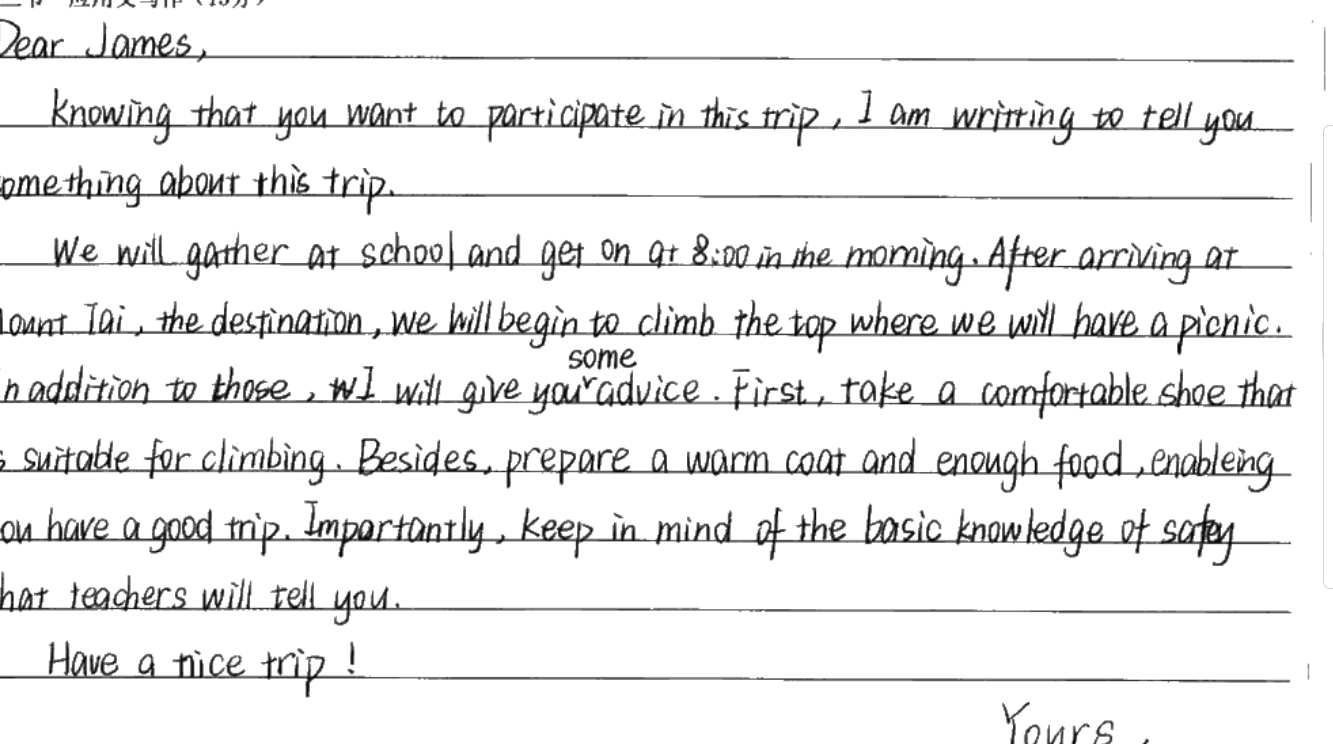 二节 应用文写作（15分）
Dear James,
Knowing that you want to participate in this trip, I am writting to tell you
omething about this trip.
We will gather at school and get on at 8:00 in the morning. After arriving at
ount Tai, the destination, we will begin to climb the top where we will have a picnic.
some
n addition to those, wI will give your advice. First, take a comfortable shoe that
s suitable for climbing. Besides, prepare a warm coat and enough food, enableing
ou have a good trip. Importantly, keep in mind of the basic knowledge of safey
hat teachers will tell you.
Have a nice trip!
Yours,